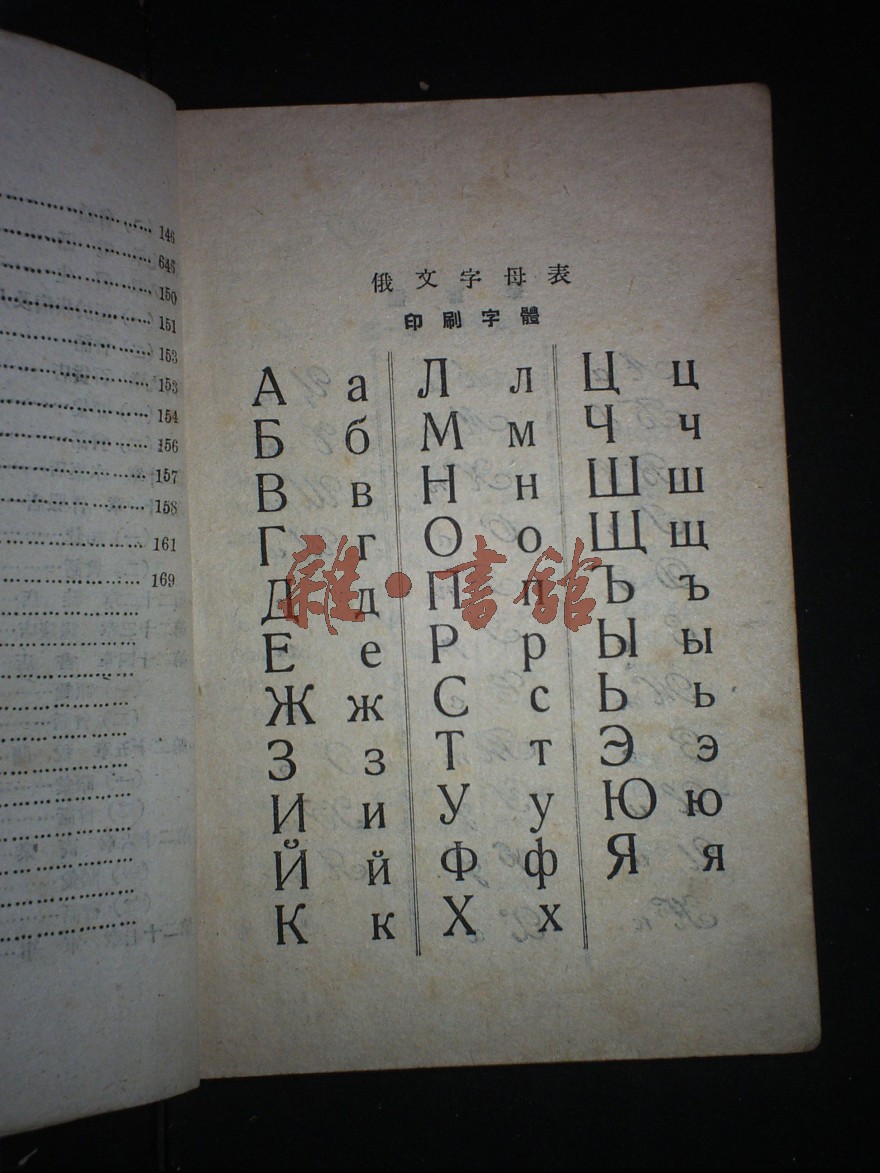 146
645
150
151
153
153
154
156
157
158
161
169
俄文字母表
印刷字體
А а Л л Ц ц
Б б М м Ч ч
В в Н н Ш ш
Г г О о Щ щ
Д д П п Ъ ъ
Е е Р р Ы ы
Ж ж С с Ь ь
З з Т т Э э
И и У у Ю ю
Й й Ф ф Я я
К к Х х
雜·書館